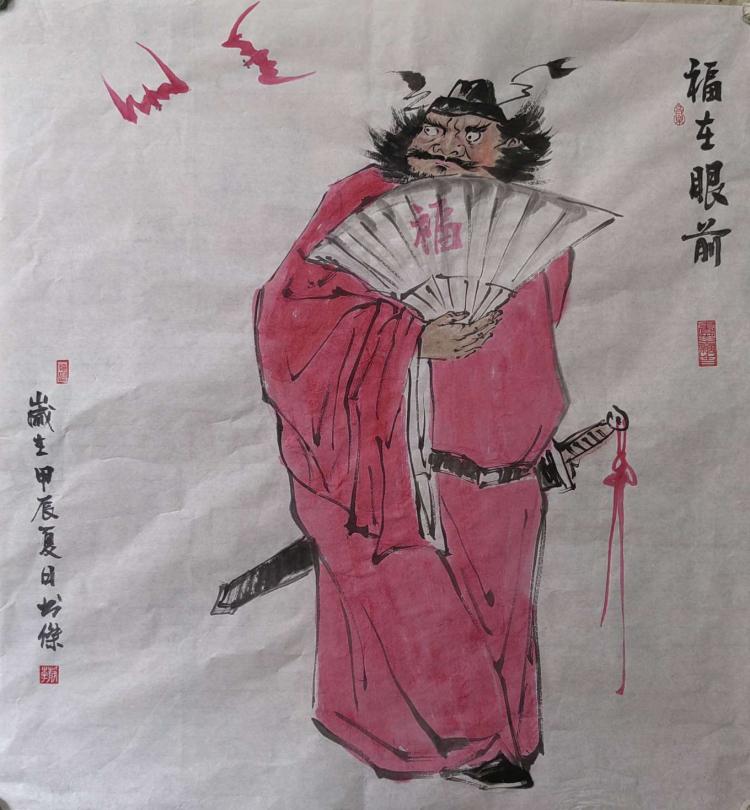 福在眼前
福
歲在甲辰夏日 书傑